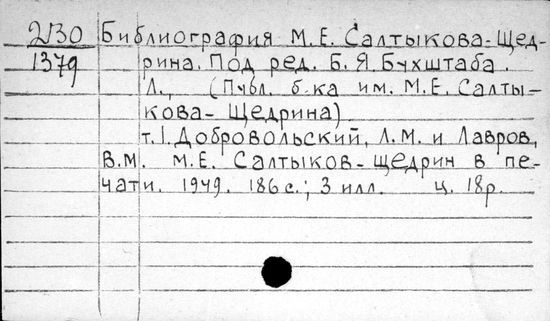 2130 Библиография М.Е. Салтыкова-Щед-
1379 рина. Под ред. Б.Я. Бухштаба.
Л., (Публ. б-ка им. М.Е. Салты-
кова-Щедрина)
т.1. Добровольский, Л.М. и Лавров,
В.М. М.Е. Салтыков-Щедрин в пе-
чати. 1949. 186 с.; 3 илл. ц. 18р.